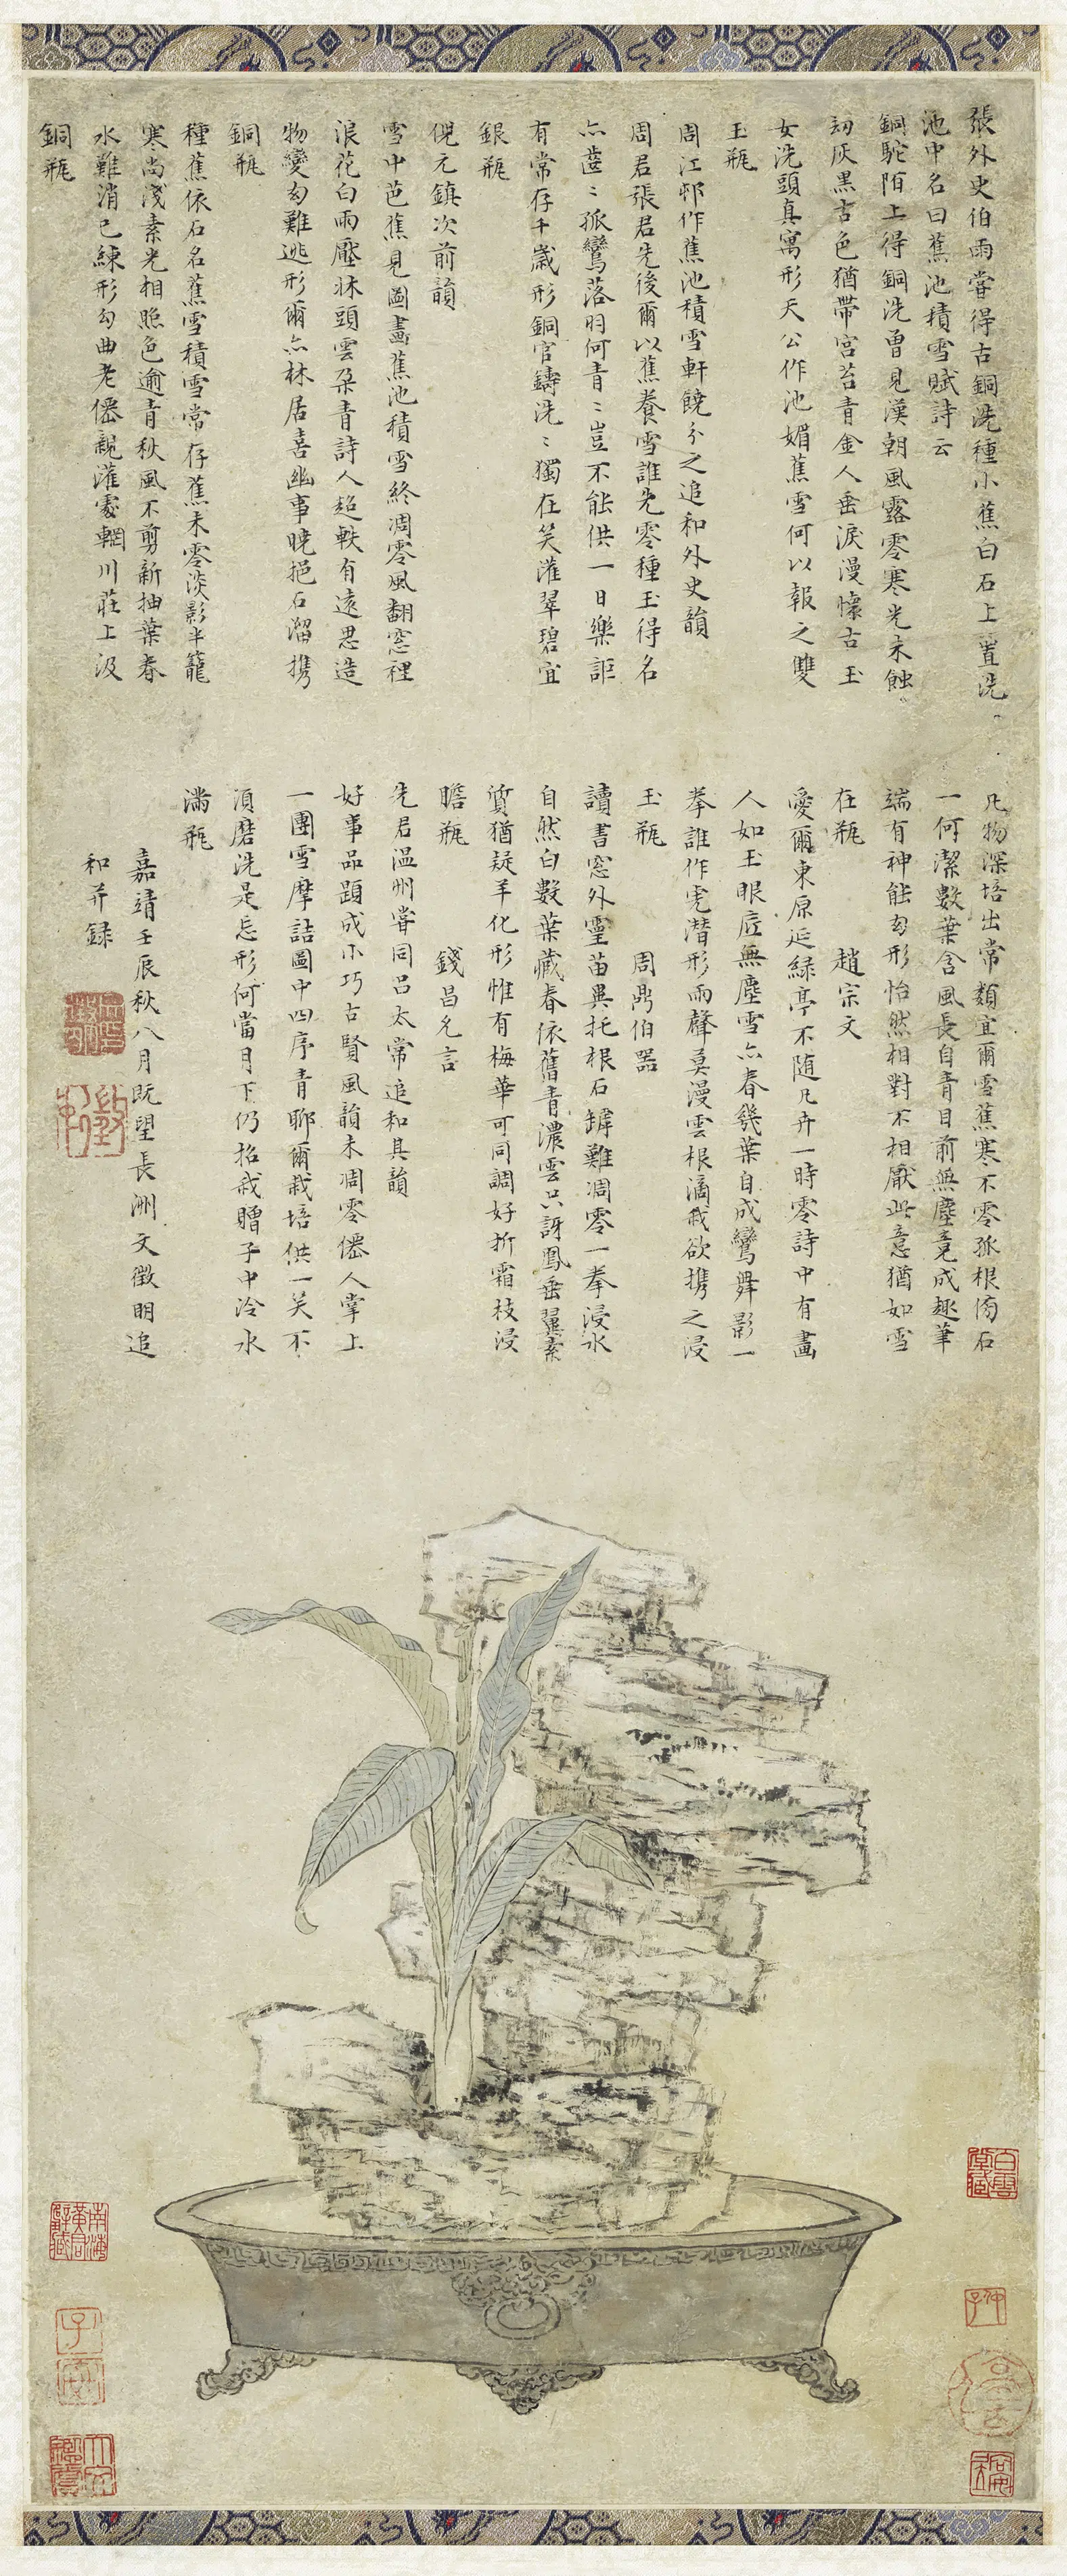 張外史伯雨嘗得古銅洗種小蕉白石上置洗
池中名曰蕉池積雪賦詩云
銅駝陌上得銅洗曾見漢朝風露零寒光未蝕
劫灰黑古色猶帶宮苔青金人垂淚漫懷古玉
女洗頭真寓形天公作池媚蕉雪何以報之雙
玉瓶
周江邨作蕉池積雪軒饒介之追和外史韻
周君張君先後爾以蕉養雪誰先零種玉得名
亦齒齒孤鸞落羽何青青豈不能供一日樂詎
有常存千歲形銅官鑄洗洗獨在笑灌翠碧宜
銀瓶
倪元鎮次前韻
雪中芭蕉見圖畫蕉池積雪終凋零風翻窓裡
浪花白雨壓牀頭雲朶青詩人超軼有遠思造
物變幻難逃形爾亦林居喜幽事曉挹石溜攜
銅瓶
種蕉依石名蕉雪積雪常存蕉未零淡影半籠
寒尚淺素光相照色逾青秋風不剪新抽葉春
水難消已練形勾曲老僊親灌處輞川莊上汲
銅瓶
凡物深培出常類宜爾雪蕉寒不零孤根倚石
一何潔數葉含風長自青目前無塵竟成趣筆
端有神能幻形怡然相對不相厭此意猶如雪
在瓶 趙宗文
愛爾東原延綠亭不随凡卉一時零詩中有畫
人如玉眼底無塵雪亦春幾葉自成鸞舞影一
拳誰作虎潛形雨聲莫漫雲根滴我欲攜之浸
玉瓶 周鼎伯器
讀書窓外靈苗異托根石罅難凋零一拳浸水
自然白數葉藏春依舊青濃雲只訝鳳垂翼素
質猶疑羊化形惟有梅華可同調好折霜枝浸
膽瓶 錢昌允言
先君溫州嘗同呂太常追和其韻
好事品題成小巧古賢風韻未凋零僊人掌上
一團雪摩詰圖中四序青聊爾栽培供一笑不
須磨洗是忘形何當月下仍招我贈子中泠水
滿瓶
嘉靖壬辰秋八月既望長洲文徵明追
和并録